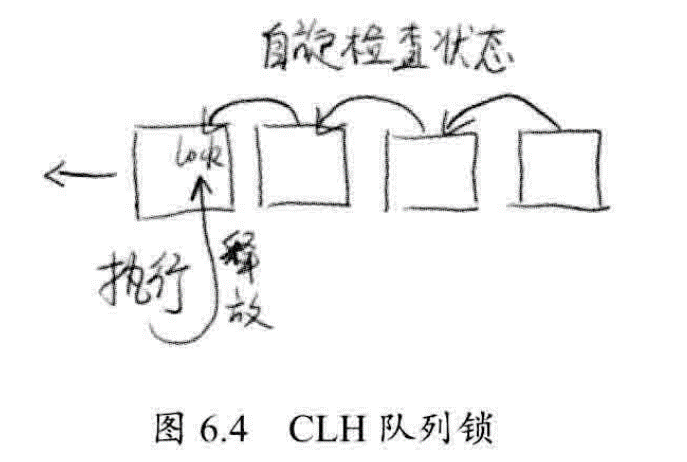 自旋检查状态
lock
执行
释放
图 6.4 CLH 队列锁